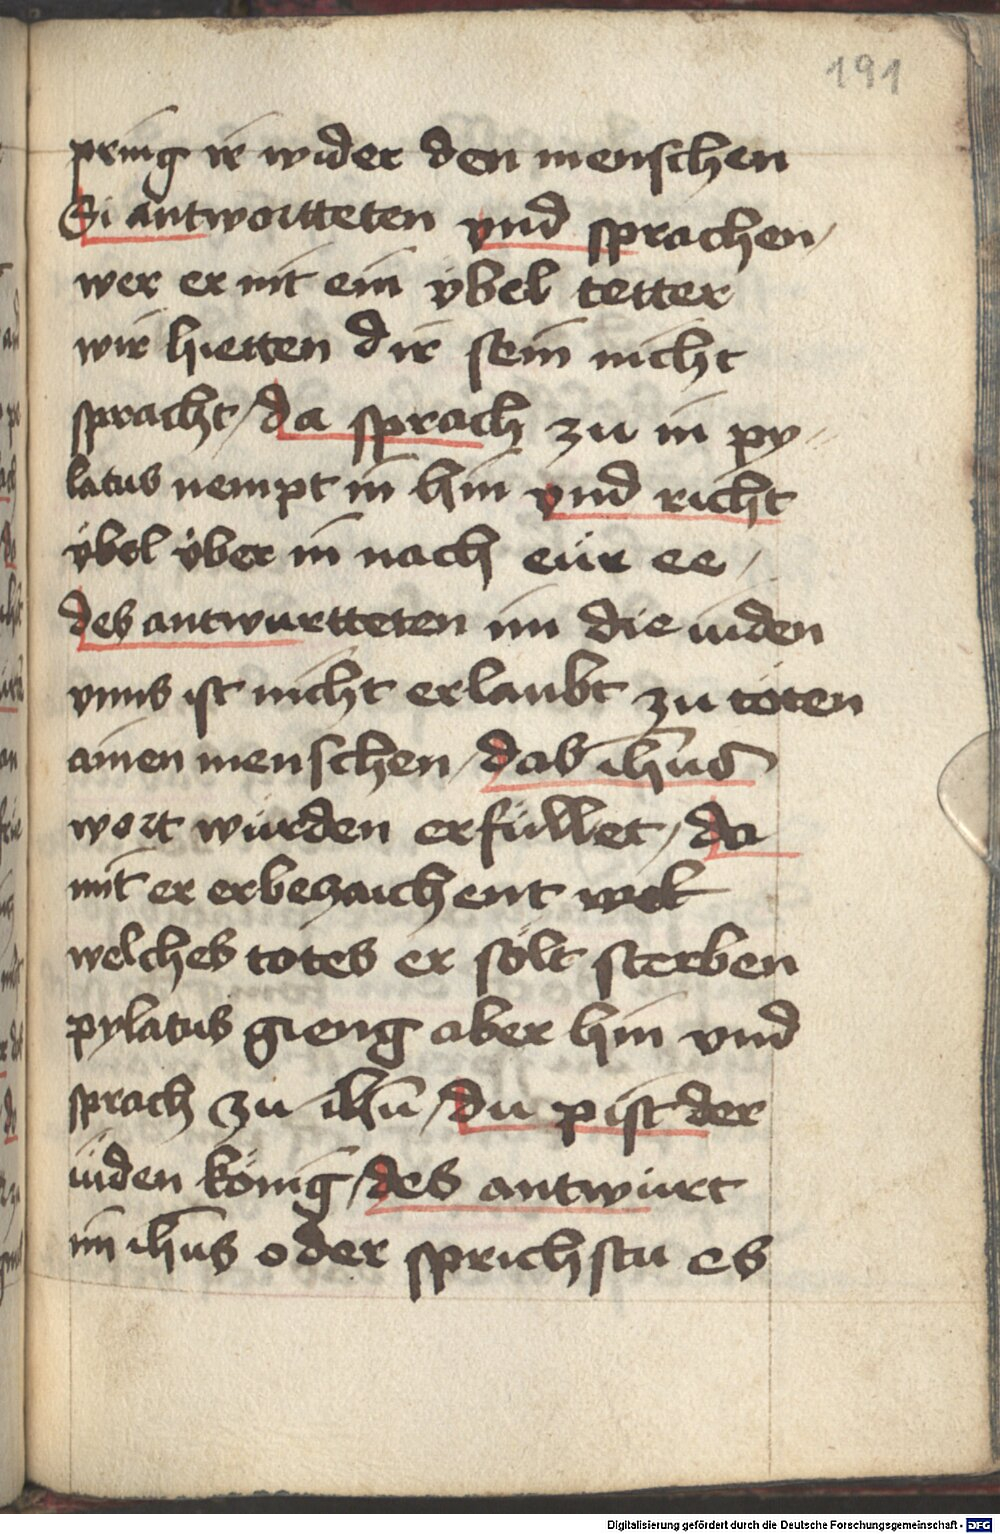 191
pring ir wider den menschen
Si antwortteten vnd sprachen /
wer er nit ein ybel tetter
wir hietten dir sein nicht
spracht / da sprach zu in py-
latus nempt in hin vnd richt
ybel yber in nach eür ee /
des antwurtteten im die iuden
vnns ist nicht erlaubt zu töten
ainen menschen / das ihūs
wort würden erfüllet / da
mit er erbezaichent
welches totes er sölt sterben
pylatus gieng aber hin vnd
sprach zu ihū / du pist der
iuden könig / des antwürt
im ihūs oder sprichstu es
Digitalisierung gefördert durch die Deutsche Forschungsgemeinschaft - DFG